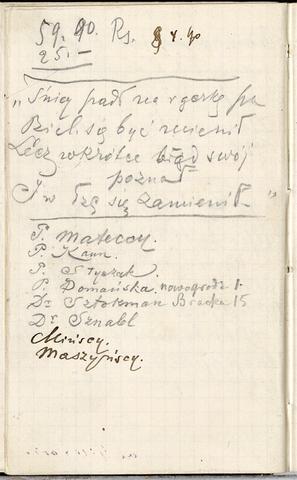 59.90. Rs. 8 4. 90
25.—
„Śnieg padł na rączkę pa
Bielszą być mienił
Lecz wkrótce błąd swój
poznał
I w łzę się zamienił."
P. Mateccy.
P. Kaun.
P. Styczak.
P. Domańska. nowogrodz 1.
Dr Sztokman Bracka 15
Dr Sznabl
Mińscy.
Maszyńscy.